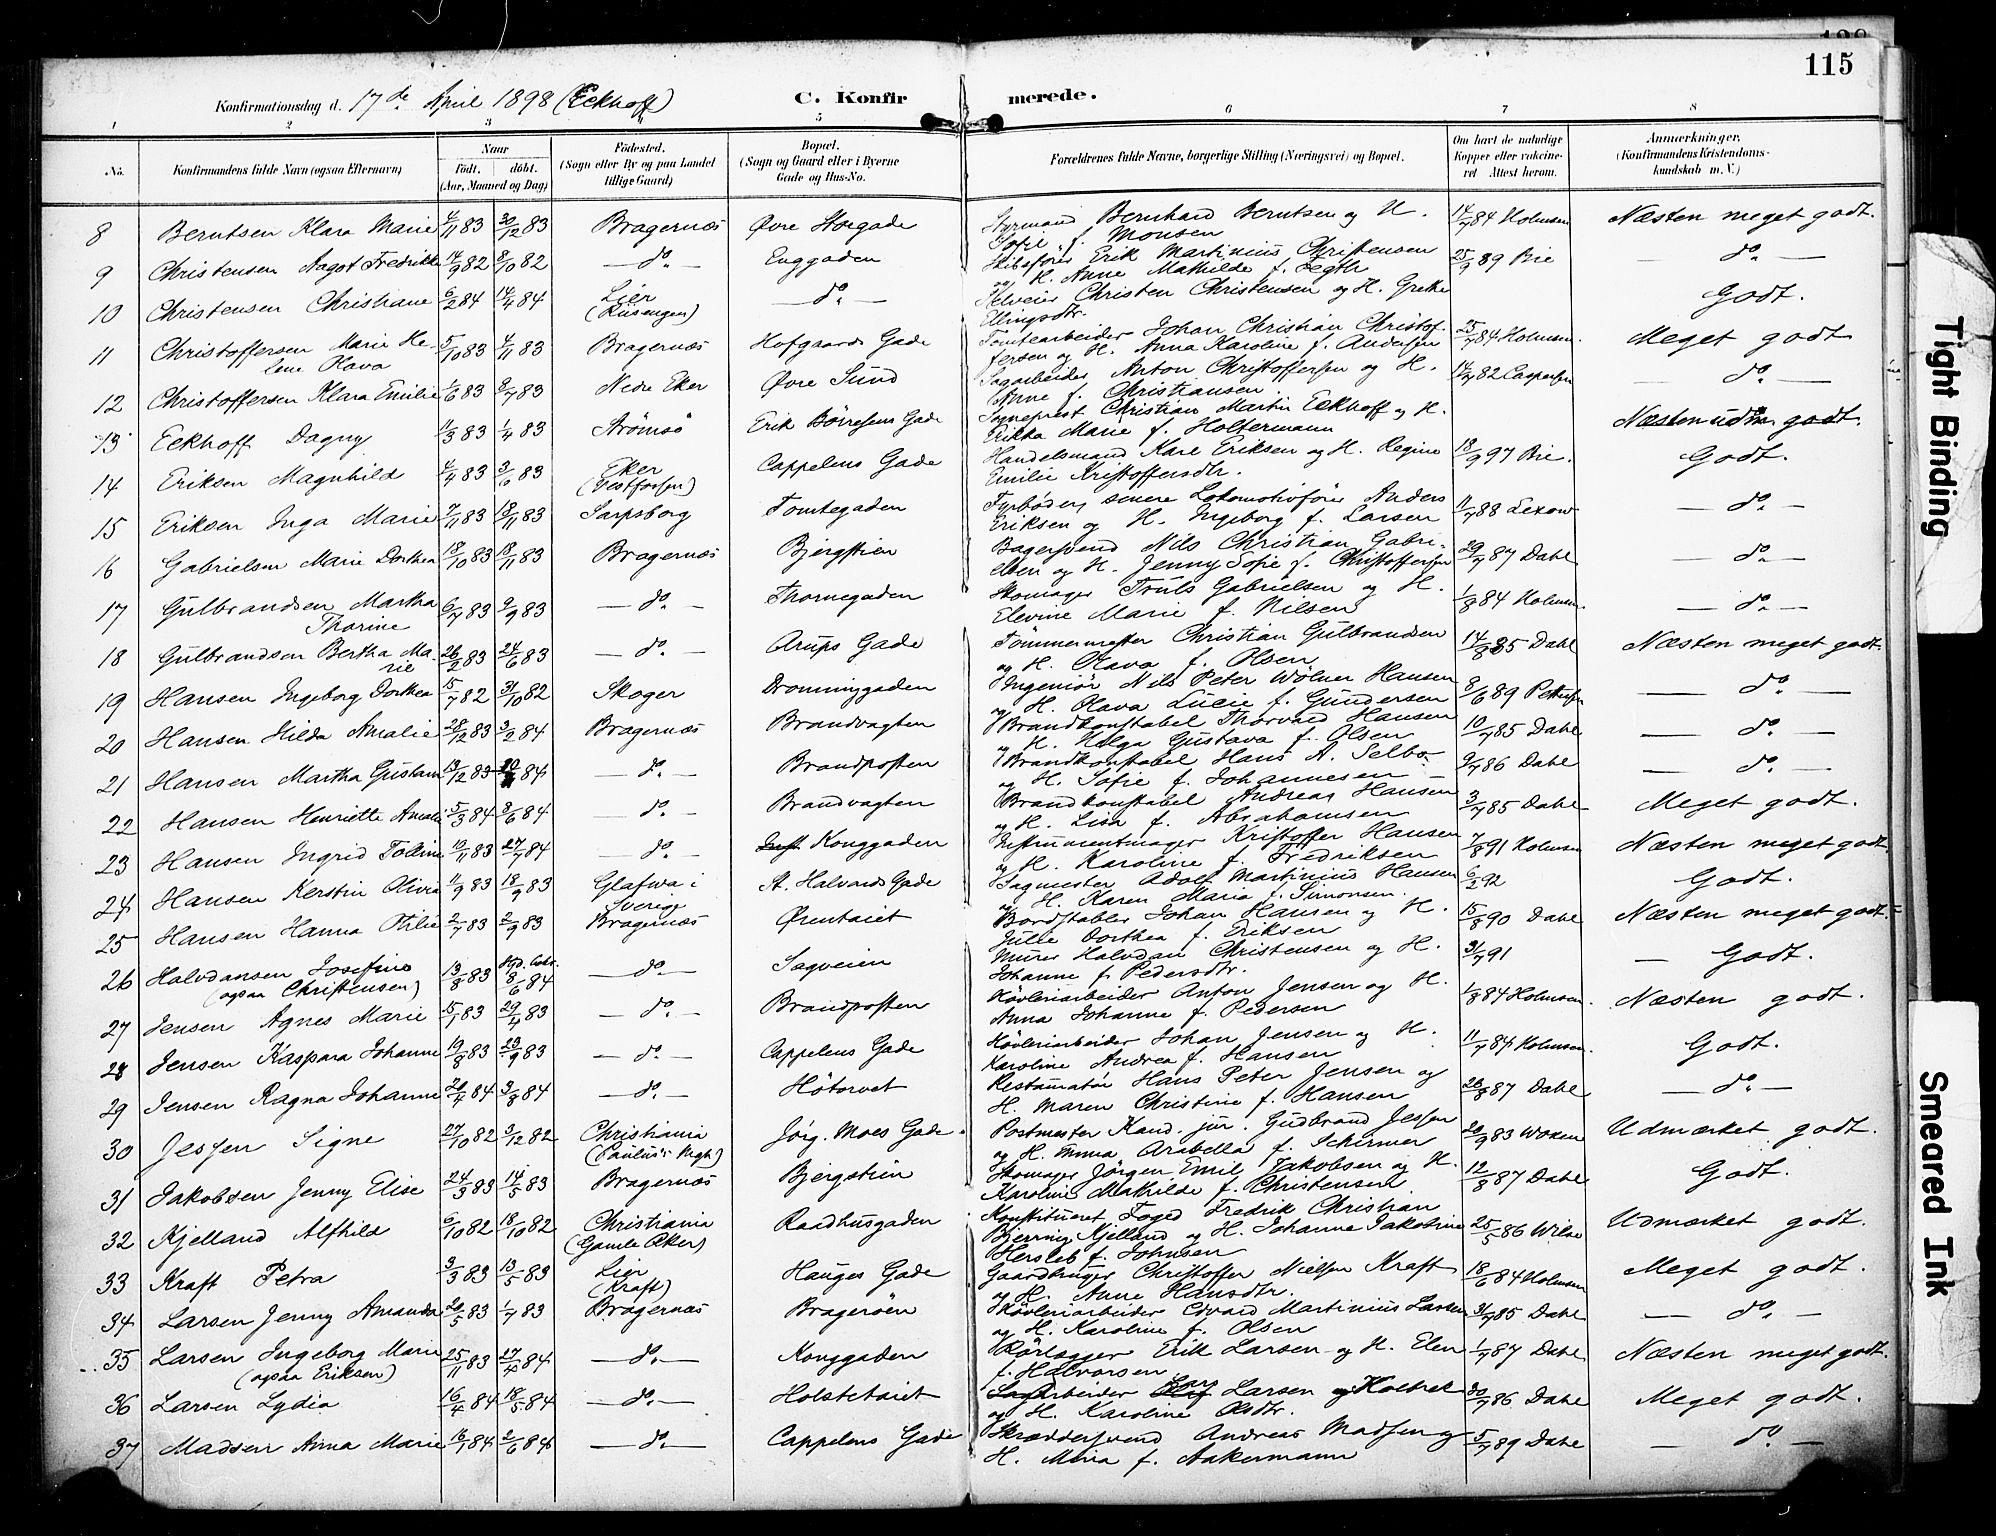 115
Konfirmationsdag d. 17de April 1898 (Eckhoff) C. Konfirmerede.
1 2 3 4 5 6 7 8
No. Konfirmandens fulde Navn (ogsaa Efternavn) Naar født. døbt. (Aar, Maaned og Dag) Fødested. (Sogn eller By og paa Landet tillige Gaard) Bopæl. (Sogn og Gaard eller i Byerne Gade og Hus-No.) Forældrenes fulde Navne, borgerlige Stilling (Næringsvei) og Bopæl. Om havt de naturlige Kopper eller vaccineret Attest herom. Anmærkninger. (Konfirmandens Kristendomskundskab m. V.)
8 Berntsen Klara Marie 4/11 83 30/12 83 Bragernæs Øvre Storgade Styrmand Bernhard Berntsen og H. Sofie f. Monsen 14/7 84 Holmsen Næsten meget godt.
9 Christensen Aagot Fredrikke 14/9 82 8/10 82 — do. — Enggaden Skibsfører Erik Martinius Christensen og H. Anne Mathilde f. Fegth 25/9 89 Bie — do. —
10 Christensen Christiane 6/2 84 14/4 84 Lier (Rusengen) — do. — Selveier Christen Christensen og H. Grethe Ellingsdtr. Godt.
11 Christoffersen Marie Helene Olava 5/10 83 4/11 83 Bragernæs Hofgaards Gade Tomtearbeider Johan Christian Christoffersen og H. Anna Karoline f. Andersen 25/7 84 Holmsen. Meget godt
12 Christoffersen Klara Emilie 1/6 83 8/7 83 Nedre Eker Øvre Sund Sagarbeider Anton Christoffersen og H. Anne f. Christiansen 14/7 82 Caspersen — do. —
13 Eckhoff Dagny 11/3 83 1/4 83 Strømsø Erik Børresens Gade Sogneprest Christian Martin Eckhoff og H. Erikka Marie f. Holtermann Næsten udm. godt.
14 Eriksen Magnhild 4/4 83 3/6 83 Eker (Vestfossen) Cappelens Gade Handelsmand Karl Eriksen og H. Regine Emilie Kristoffersdtr. 18/9 97 Bie. Godt.
15 Eriksen Inga Marie 7/11 83 18/11 83 Sarpsborg Tomtegaden Fyrbøder, senere Lokomotivfører Anders Eriksen og H. Ingeborg f. Larsen 11/7 88 Lexow — do. —
16 Gabrielsen Marie Dorthea 18/10 83 18/11 83 Bragernæs Bjergstien Bagersvend Nils Christian Gabrielsen og H. Jenny Sofie f. Christoffersen 29/7 87 Dahl — do. —
17 Gulbrandsen Martha Thorine 6/7 83 9/9 83 — do. — Thornegaden Skomager Truls Gabrielsen og H. Elevine Marie f. Nilsen 1/8 84 Holmsen. — do. —
18 Gulbrandsen Bertha Marie 26/2 83 24/6 83 — do. — Arups Gade Tømmermester Christian Gulbrandsen og H. Olava f. Olsen 14/8 85 Dahl Næsten meget godt.
19 Hansen Ingeborg Dorthea 15/7 82 31/10 82 Skoger Dronninggaden Ingeniør Nils Peter Wølner Hansen og H. Olava Lucie f. Gundersen 8/6 89 Pettersen — do. —
20 Hansen Hilda Amalie 28/12 83 3/2 84 Bragernæs Brandvagten Brandkonstabel Thorvald Hansen og H. Helga Gustava f. Olsen 10/7 85 Dahl — do. —
21 Hansen Martha Gustava 13/12 83 84 — do. — Brandposten Brandkonstabel Hans A. Selbo og H. Sofie f. Johannesen 9/7 86 Dahl — do. —
22 Hansen Henriette Amalie 5/3 84 8/6 84 — do. — Brandvagten Brandkonstabel Andreas Hansen og H. Lisa f. Abrahamsen 3/7 85 Dahl Meget godt.
23 Hansen Ingrid Tolline 10/11 83 27/7 84 — do. — Konggaden Instrumentmager Kristoffer Hansen og H. Karoline f. Fredriksen 7/8 91 Holmsen Næsten meget godt
24 Hansen Kerstin Olivia 11/9 83 18/9 83 Glafwa i Sverige St. Halvards Gade Sagmester Adolf Martinius Hansen og H. Karen Maria f. Simonsen. 6/2 92 Godt.
25 Hansen Hanna Otilie 2/7 83 2/9 83 Bragernæs Ørentaiet Bordstabler Johan Hansen og H. Julie Dorthea f. Eriksen 15/8 90 Dahl Næsten meget godt.
26 Halvdansen Josefine (ogsaa Christensen) 13/8 83 8/6 84 — do. — Sagveien Murer Halvdan Christensen og H. Johanne f. Pedersdtr. 31/7 91 — Godt.
27 Jensen Agnes Marie 15/1 83 29/4 83 — do. — Brandposten Høvleriarbeider Anton Jensen og H. Anna Johanne f. Pedersen 1/8 84 Holmsen. Næsten godt.
28 Jensen Kaspara Johanne 19/8 83 23/9 83 — do. — Cappelens Gade Høvleriarbeider Johan Jensen og H. Karoline Andrea f. Hansen 11/7 84 Holmsen. Godt.
29 Jensen Ragna Johanne 20/4 84 3/8 84 — do. — Høtorvet Restauratør Hans Peter Jensen og H. Maren Christine f. Hansen 26/8 87 Dahl — do. —
30 Jessen Signe 27/10 82 3/12 82 Christiania (Paulus's Mgh.) Jørg. Moes Gade. Postmester Kand. jur. Gudbrand Jessen og H. Emma Arabella f. Schirmer 20/9 83 Woxen Udmærket godt.
31 Jakobsen Jenny Elise 24/3 83 14/5 83 Bragernæs Bjergstien Skomager Jørgen Emil Jakobsen og H. Karoline Mathilde f. Christensen 12/8 87 Dahl Godt.
32 Kjelland Alfhild 6/10 82 18/10 82 Christiania (Gamle Aker) Raadhusgaden Konstitueret Foged Fredrik Christian Bjerring Kjelland og H. Johanne Jakobine Hersleb f. Johnsen 25/5 86 Wilse Udmærket godt.
33 Kraft Petra 3/3 83 13/5 83 Lier (Kraft) Hauges Gade Gaardbruger Christoffer Nielsen Kraft og H. Anne Hansdtr. 18/6 84 Holmsen Meget godt.
34 Larsen Jenny Amanda 20/5 83 1/7 83 Bragernæs Bragerøen Høvleriarbeider Edvard Martinius Larsen og H. Karoline f. Olsen 31/7 85 Dahl — do. —
35 Larsen Ingeborg Marie (ogsaa Eriksen) 25/11 83 27/4 84 — do. — Konggaden Rørlægger Erik Larsen og H. Elen f. Halvorsen 1/7 87 Dahl Næsten meget godt.
36 Larsen Lydia 16/4 84 18/5 84 — do. — Holstetaiet Sagarbeider Lars Larsen og H. Karoline Olsdtr. 30/7 86 Dahl Meget godt.
37 Madsen Anna Marie 16/1 84 2/6 84 — do. — Cappelens Gade Skræddersvend Andreas Madsen og H. Mina f. Aakermann 5/7 89 Dahl — do. —
Tight Binding
Smeared Ink